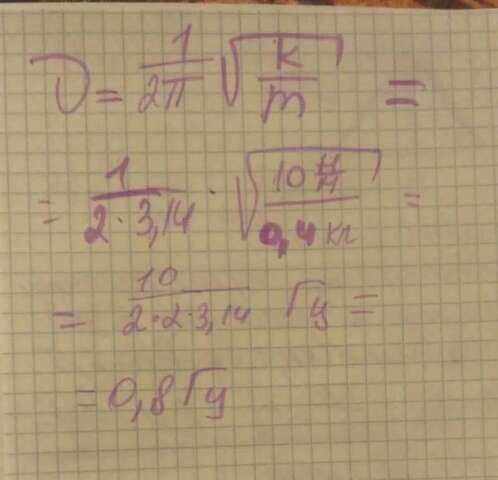 ν = 1/2π √k/m =
= 1/2·3,14 · √10 Н/м / 0,4 кг =
= 10/2·2·3,14 Гц =
= 0,8 Гц